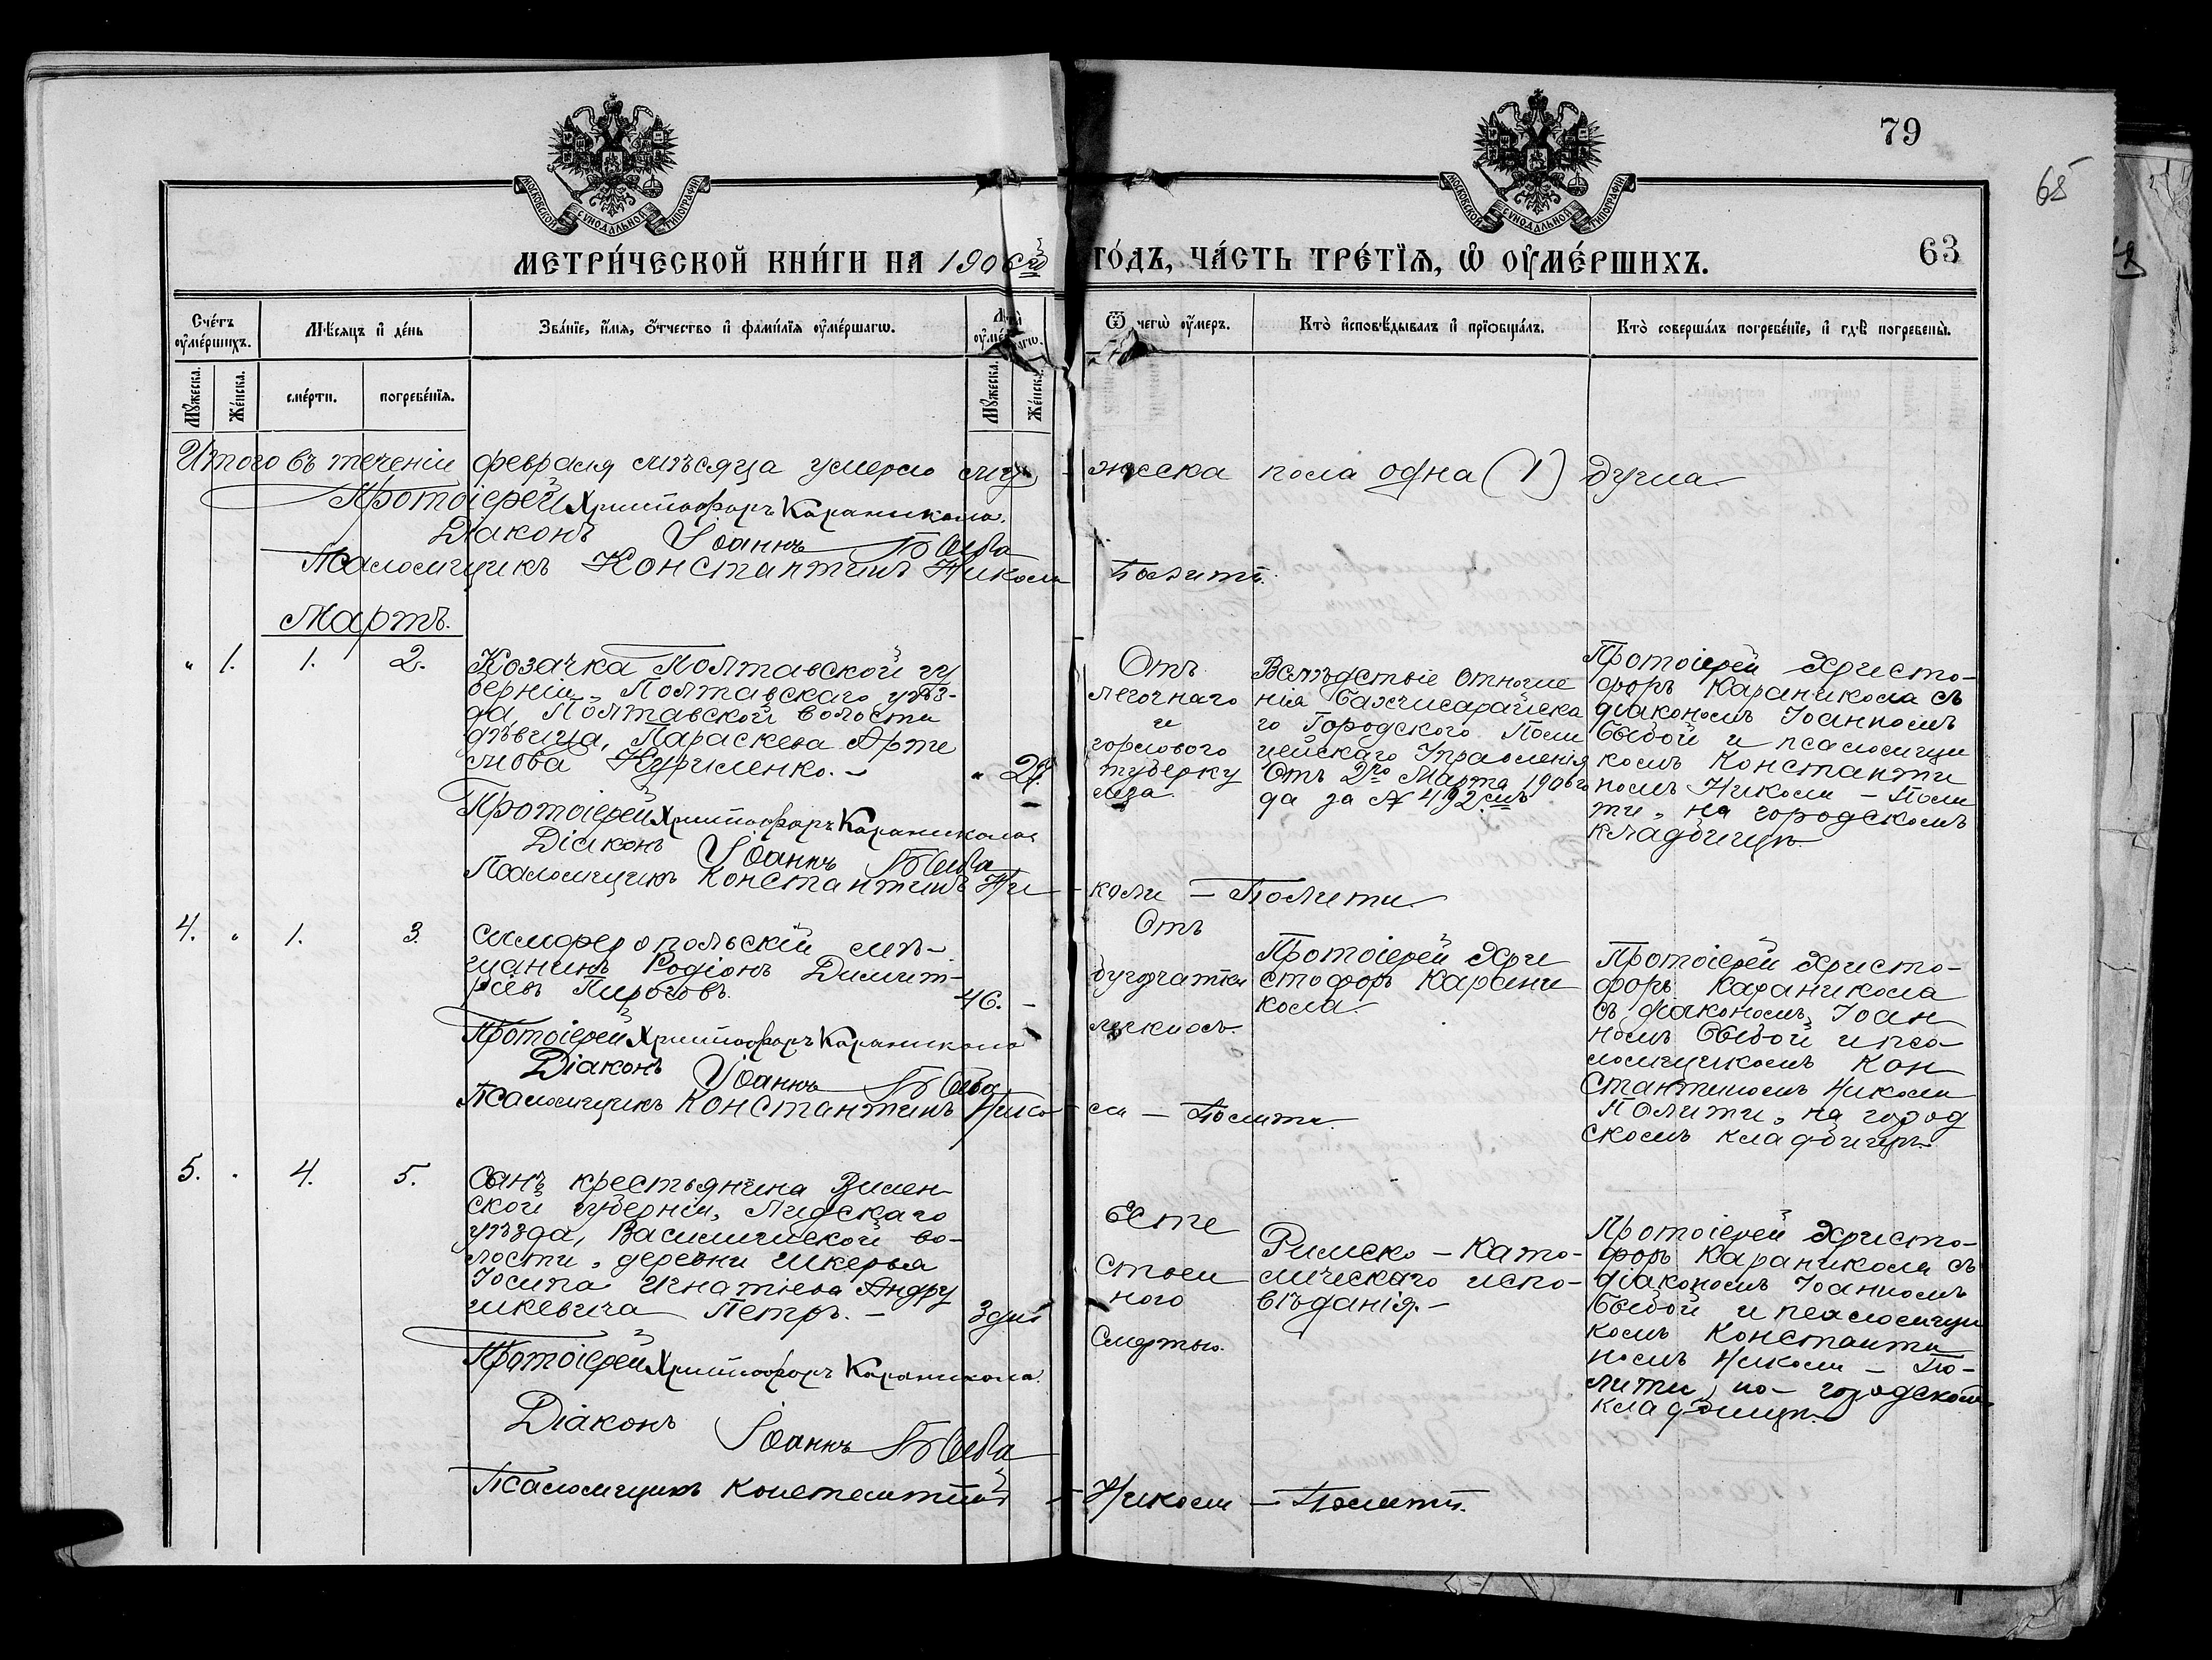 79
65
63
МОСКОВСКОЙ СѴНОДАЛЬНОЙ ТИПОГРАФІИ
МОСКОВСКОЙ СѴНОДАЛЬНОЙ ТИПОГРАФІИ
МЕТРИ́ЧЕСКОЙ КНИ́ГИ НА 1906й го́дъ, ЧА́СТЬ ТРЕ́ТІѦ, Ѽ ОУ҆МЕ́РШИХЪ.
Сче́тъ оу҆ме́ршихъ.
Мѣ́сяцъ и҆ де́нь
Зва́нїе, и҆́мѧ, ѻ҆́тчество и҆ фами́лїѧ оу҆ме́ршагѡ.
Лѣ̀та̀ оу҆ме́ршагѡ.
Ѿ чегѡ̀ оу҆́меръ.
Кто̀ и҆сповѣ́дывалъ и҆ прїѡбща́лъ.
Кто̀ соверша́лъ погребе́нїе, и҆ гдѣ̀ погребены̀.
Мꙋ́жеска.
Же́нска.
сме́рти.
погребе́нїѧ.
Мꙋ́жеска.
Же́нска.
Итого въ теченіи февраля мѣсяца умерло муж-
жеска пола одна (1) душа
Протоіерей Христофоръ Караникола.
Діаконъ Іоаннъ Быба
Псаломщикъ Константинъ Николи
Полити.
Мартъ.
" 1. 1. 2.
Козачка Полтавской гу
берніи, Полтавскаго уѣз-
да, Полтавской волости
дѣвица, Параскева Арте
мова Куриленко. -
" 27.
Отъ
легочнаго
и
горлового
туберку
леза
Вслѣдствіе отноше
нія Бахчисарайска
го Городского Поли
цейскаго Управленія
Отъ 2го Марта 1906 го
да за № 492.мъ
Протоіерей Христо-
форъ Караникола съ
діакономъ Іоанномъ
Быбой и псаломщи
комъ Константи
номъ Николи - Поли
ти, на городскомъ
кладбищѣ.
Протоіерей Христофоръ Караникола
Діаконъ Іоаннъ Быба
Псаломщикъ Константинъ Ни-
коли - Полити
4. " 1. 3.
Симферопольскій мѣ-
щанинъ Родіонъ Димит-
ріевъ Пироговъ.
46. -
Отъ
бугорчатки
легкихъ.
Протоіерей Хри
стофоръ Карани
кола.
Протоіерей Христо-
форъ Караникола
съ діакономъ Іоан
номъ Быбой и пса
ломщикомъ Кон
стантиномъ Николи
Полити, на город
скомъ кладбищѣ.
Протоіерей Христофоръ Караникола
Діаконъ Іоаннъ Быба
Псаломщикъ Константинъ Нико-
ли - Полити.
5. " 4. 5.
Сынъ крестьянина Вилен
ской губерніи, Лидскаго
уѣзда, Василишской во-
лости, деревни Шкерья
Іосипа Игнатіева Андру
шкевича Петръ. -
3 дня
Есте
ствен
ного
Смертью.
Римско - Като-
лическаго испо-
вѣданія. -
Протоіерей Христо-
форъ Караникола съ
діакономъ Іоанномъ
Быбой и псаломщи
комъ Константи
номъ Николи - По-
лити, на городскомъ
кладбищѣ.
Протоіерей Христофоръ Караникола.
Діаконъ Іоаннъ Быба
Псаломщикъ Константинъ
Николи - Полити.